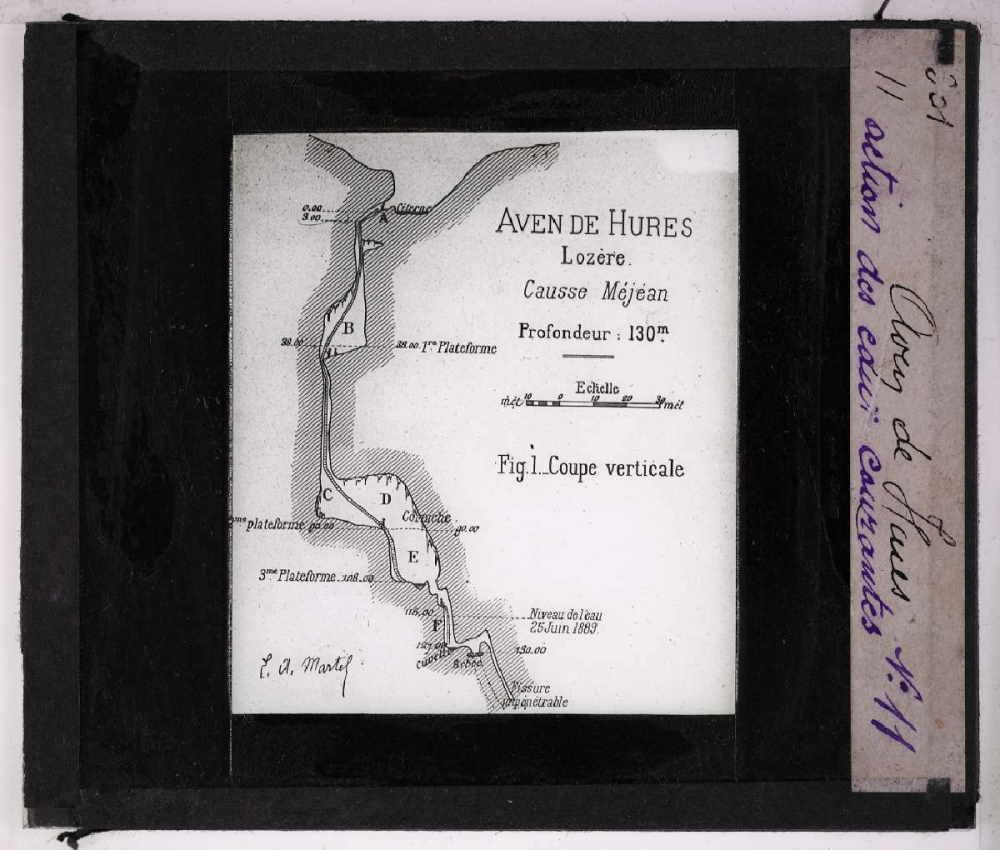 AVEN DE HURES
Lozère.
Causse Méjéan
Profondeur : 130m.
Echelle
mét 10 0 10 20 30 mét
Fig. 1._Coupe verticale
0.00
3.00
Citerne
A
B
38.00
38.00. 1re Plateforme
C
D
Corniche
me plateforme 90.00
90.00
E
3me Plateforme 108.00
116.00
F
Niveau de l'eau
25 Juin 1889.
Cuvette
130.00
Fissure
impénétrable
E. A. Martel
11 action des eaux courantes
Aven de Hures N° 11